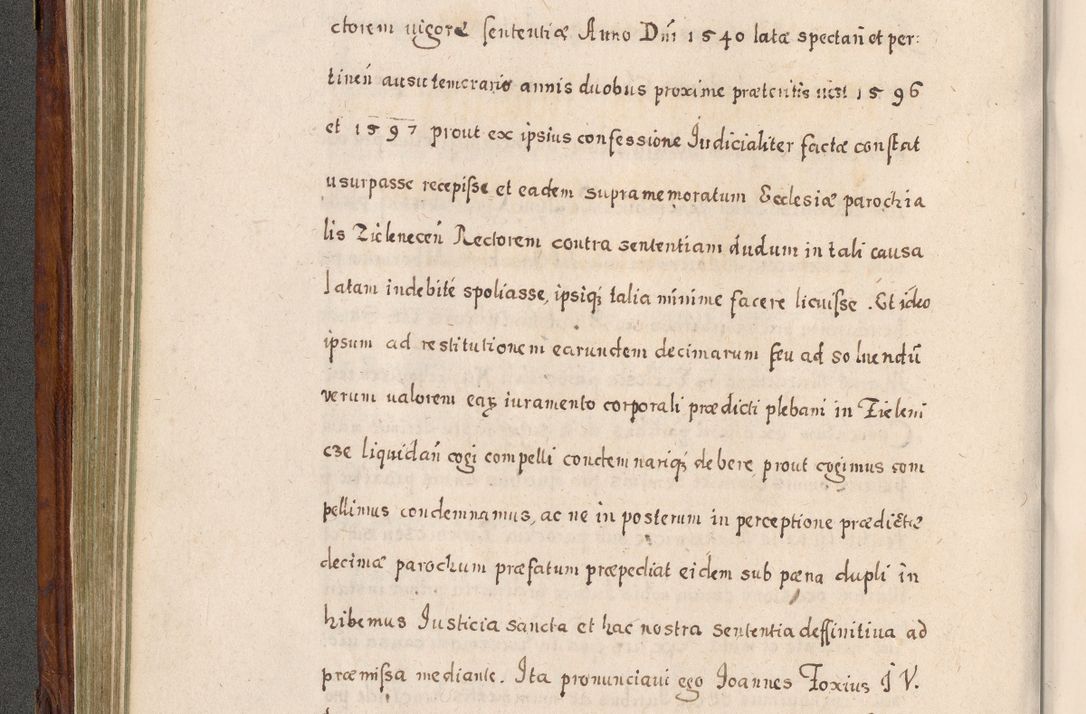 ctorem uigore sententiæ Anno Dnı 1540 latæ spectañ et per:
tineñ ausu temerario annis duobus proxime præteritis uist 1596
et 1597 prout ex ipsius confessione Iudicialiter factæ constat
usurpasse recepisse et eadem supramemoratum Ecclesiæ parochia
lis Zieleneceñ Rectorem contra sententiam dudum in tali causa
latam indebité spoliasse, ipsiq; talia minime facere licuisse. Et ideo
ipsum ad restitutionem earundem decimarum seu ad soluendũ
verum ualorem eaꝝ iuramento corporali prædicti plebani in Zieleni
cze liquidañ cogi compelli condemnariq; debere prout cogimus com
pellimus condemnamus, ac ne in posterum in perceptione prædictæ
decimæ parochum præfatum præpediat eidem sub pæna dupli in
hibemus Iusticia sancta et hac nostra sententia deffinitiua ad
præmissa mediante. Ita pronunciaui ego Ioannes Foxius I V.